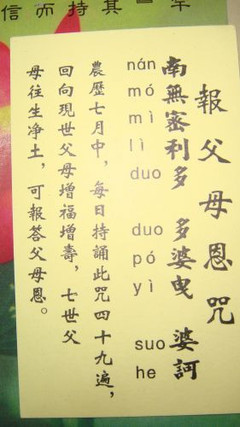 信而持其一年
報父母恩咒
南無密利多 多婆曳 婆訶
nán mó mì lì duo duo pó yì suo he
農歷七月中，每日持誦此咒四十九遍，
回向現世父母增福增壽，七世父
母往生净土，可報答父母恩。